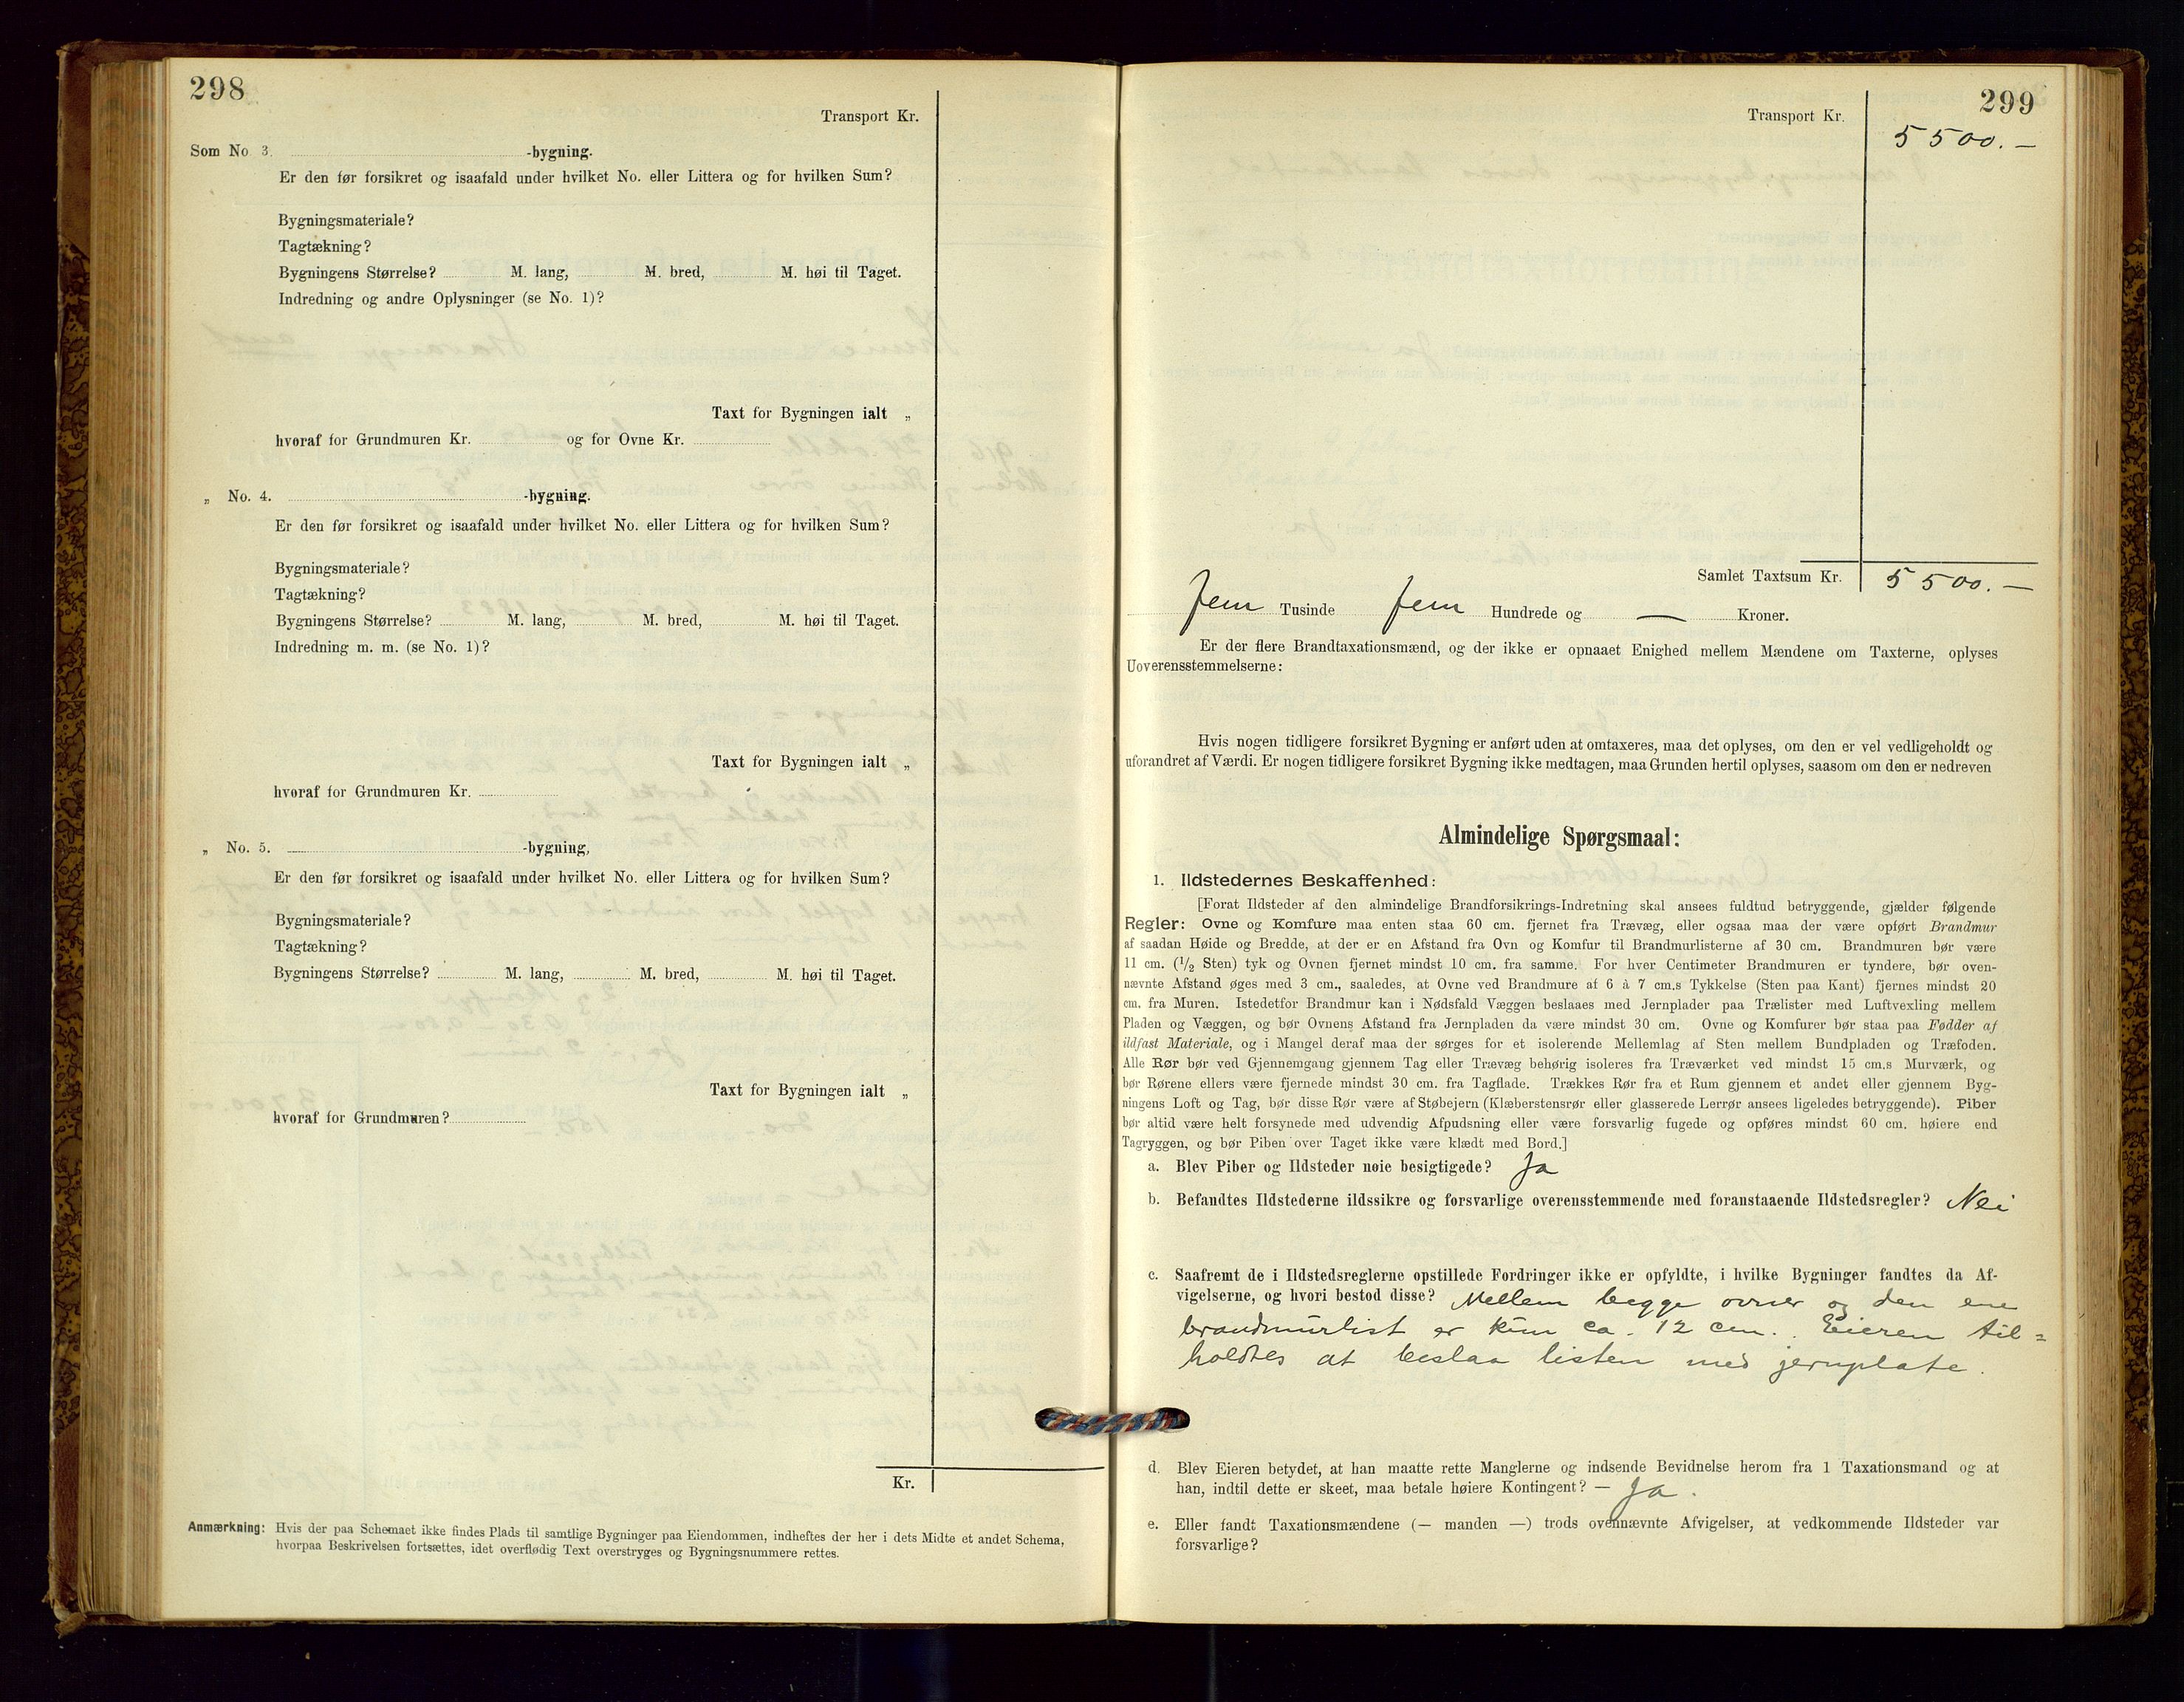 298
Transport Kr.
Som No. 3. -bygning.
Er den før forsikret og isaafald under hvilket No. eller Littera og for hvilken Sum?
Bygningsmateriale?
Tagtækning?
Bygningens Størrelse? M. lang, M. bred, M. høi til Taget.
Indredning og andre Oplysninger (se No. 1)?
Taxt for Bygningen ialt „
hvoraf for Grundmuren Kr. og for Ovne Kr.
„ No. 4. -bygning.
Er den før forsikret og isaafald under hvilket No. eller Littera og for hvilken Sum?
Bygningsmateriale?
Tagtækning?
Bygningens Størrelse? M. lang, M. bred, M. høi til Taget.
Indredning m. m. (se No. 1)?
Taxt for Bygningen ialt „
hvoraf for Grundmuren Kr.
„ No. 5. -bygning,
Er den før forsikret og isaafald under hvilket No. eller Littera og for hvilken Sum?
Bygningsmateriale?
Tagtækning?
Bygningens Størrelse? M. lang, M. bred, M. høi til Taget.
Taxt for Bygningen ialt „
hvoraf for Grundmuren?
Kr.
Anmærkning: Hvis der paa Schemaet ikke findes Plads til samtlige Bygninger paa Eiendommen, indheftes der her i dets Midte et andet Schema,
hvorpaa Beskrivelsen fortsættes, idet overflødig Text overstryges og Bygningsnummere rettes.
299
Transport Kr.
5500.—
Samlet Taxtsum Kr. 5500.—
fem Tusinde fem Hundrede og — Kroner.
Er der flere Brandtaxationsmænd, og der ikke er opnaaet Enighed mellem Mændene om Taxterne, oplyses
Uoverensstemmelserne:
Hvis nogen tidligere forsikret Bygning er anført uden at omtaxeres, maa det oplyses, om den er vel vedligeholdt og
uforandret af Værdi. Er nogen tidligere forsikret Bygning ikke medtagen, maa Grunden hertil oplyses, saasom om den er nedreven
Almindelige Spørgsmaal:
1. Ildstedernes Beskaffenhed:
[Forat Ildsteder af den almindelige Brandforsikrings-Indretning skal ansees fuldtud betryggende, gjælder følgende
Regler: Ovne og Komfure maa enten staa 60 cm. fjernet fra Trævæg, eller ogsaa maa der være opført Brandmur
af saadan Høide og Bredde, at der er en Afstand fra Ovn og Komfur til Brandmurlisterne af 30 cm. Brandmuren bør være
11 cm. (1/2 Sten) tyk og Ovnen fjernet mindst 10 cm. fra samme. For hver Centimeter Brandmuren er tyndere, bør oven-
nævnte Afstand øges med 3 cm., saaledes, at Ovne ved Brandmure af 6 à 7 cm.s Tykkelse (Sten paa Kant) fjernes mindst 20
cm. fra Muren. Istedetfor Brandmur kan i Nødsfald Væggen beslaaes med Jernplader paa Trælister med Luftvexling mellem
Pladen og Væggen, og bør Ovnens Afstand fra Jernpladen da være mindst 30 cm. Ovne og Komfurer bør staa paa Fødder af
ildfast Materiale, og i Mangel deraf maa der sørges for et isolerende Mellemlag af Sten mellem Bundpladen og Træfoden.
Alle Rør bør ved Gjennemgang gjennem Tag eller Trævæg behørig isoleres fra Træværket ved mindst 15 cm.s Murværk, og
bør Rørene ellers være fjernede mindst 30 cm. fra Tagflade. Trækkes Rør fra et Rum gjennem et andet eller gjennem Byg-
ningens Loft og Tag, bør disse Rør være af Støbejern (Klæberstensrør eller glasserede Lerrør ansees ligeledes betryggende). Piber
bør altid være helt forsynede med udvendig Afpudsning eller være forsvarlig fugede og opføres mindst 60 cm. høiere end
Tagryggen, og bør Piben over Taget ikke være klædt med Bord.]
a. Blev Piber og Ildsteder nøie besigtigede? Ja
b. Befandtes Ildstederne ildssikre og forsvarlige overensstemmende med foranstaaende Ildstedsregler? Nei
c. Saafremt de i Ildstedsreglerne opstillede Fordringer ikke er opfyldte, i hvilke Bygninger fandtes da Af-
vigelserne, og hvori bestod disse? Mellem begge ovner og den ene
brandmurlist er kun ca. 12 cm. Eieren til=
holdtes at beslaa listen med jernplate.
d. Blev Eieren betydet, at han maatte rette Manglerne og indsende Bevidnelse herom fra 1 Taxationsmand og at
han, indtil dette er skeet, maa betale høiere Kontingent? — Ja.
e. Eller fandt Taxationsmændene (— manden —) trods ovennævnte Afvigelser, at vedkommende Ildsteder var
forsvarlige?